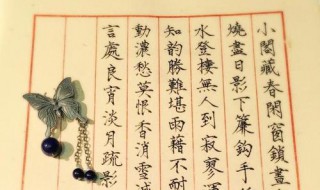 小閣藏春閑窗鎖晝
燒盡日影下簾鉤手
水登樓無人到寂寥渾
知韵勝難堪雨藉不耐
動濃愁莫恨香消雪減
言處良宵淡月疏影